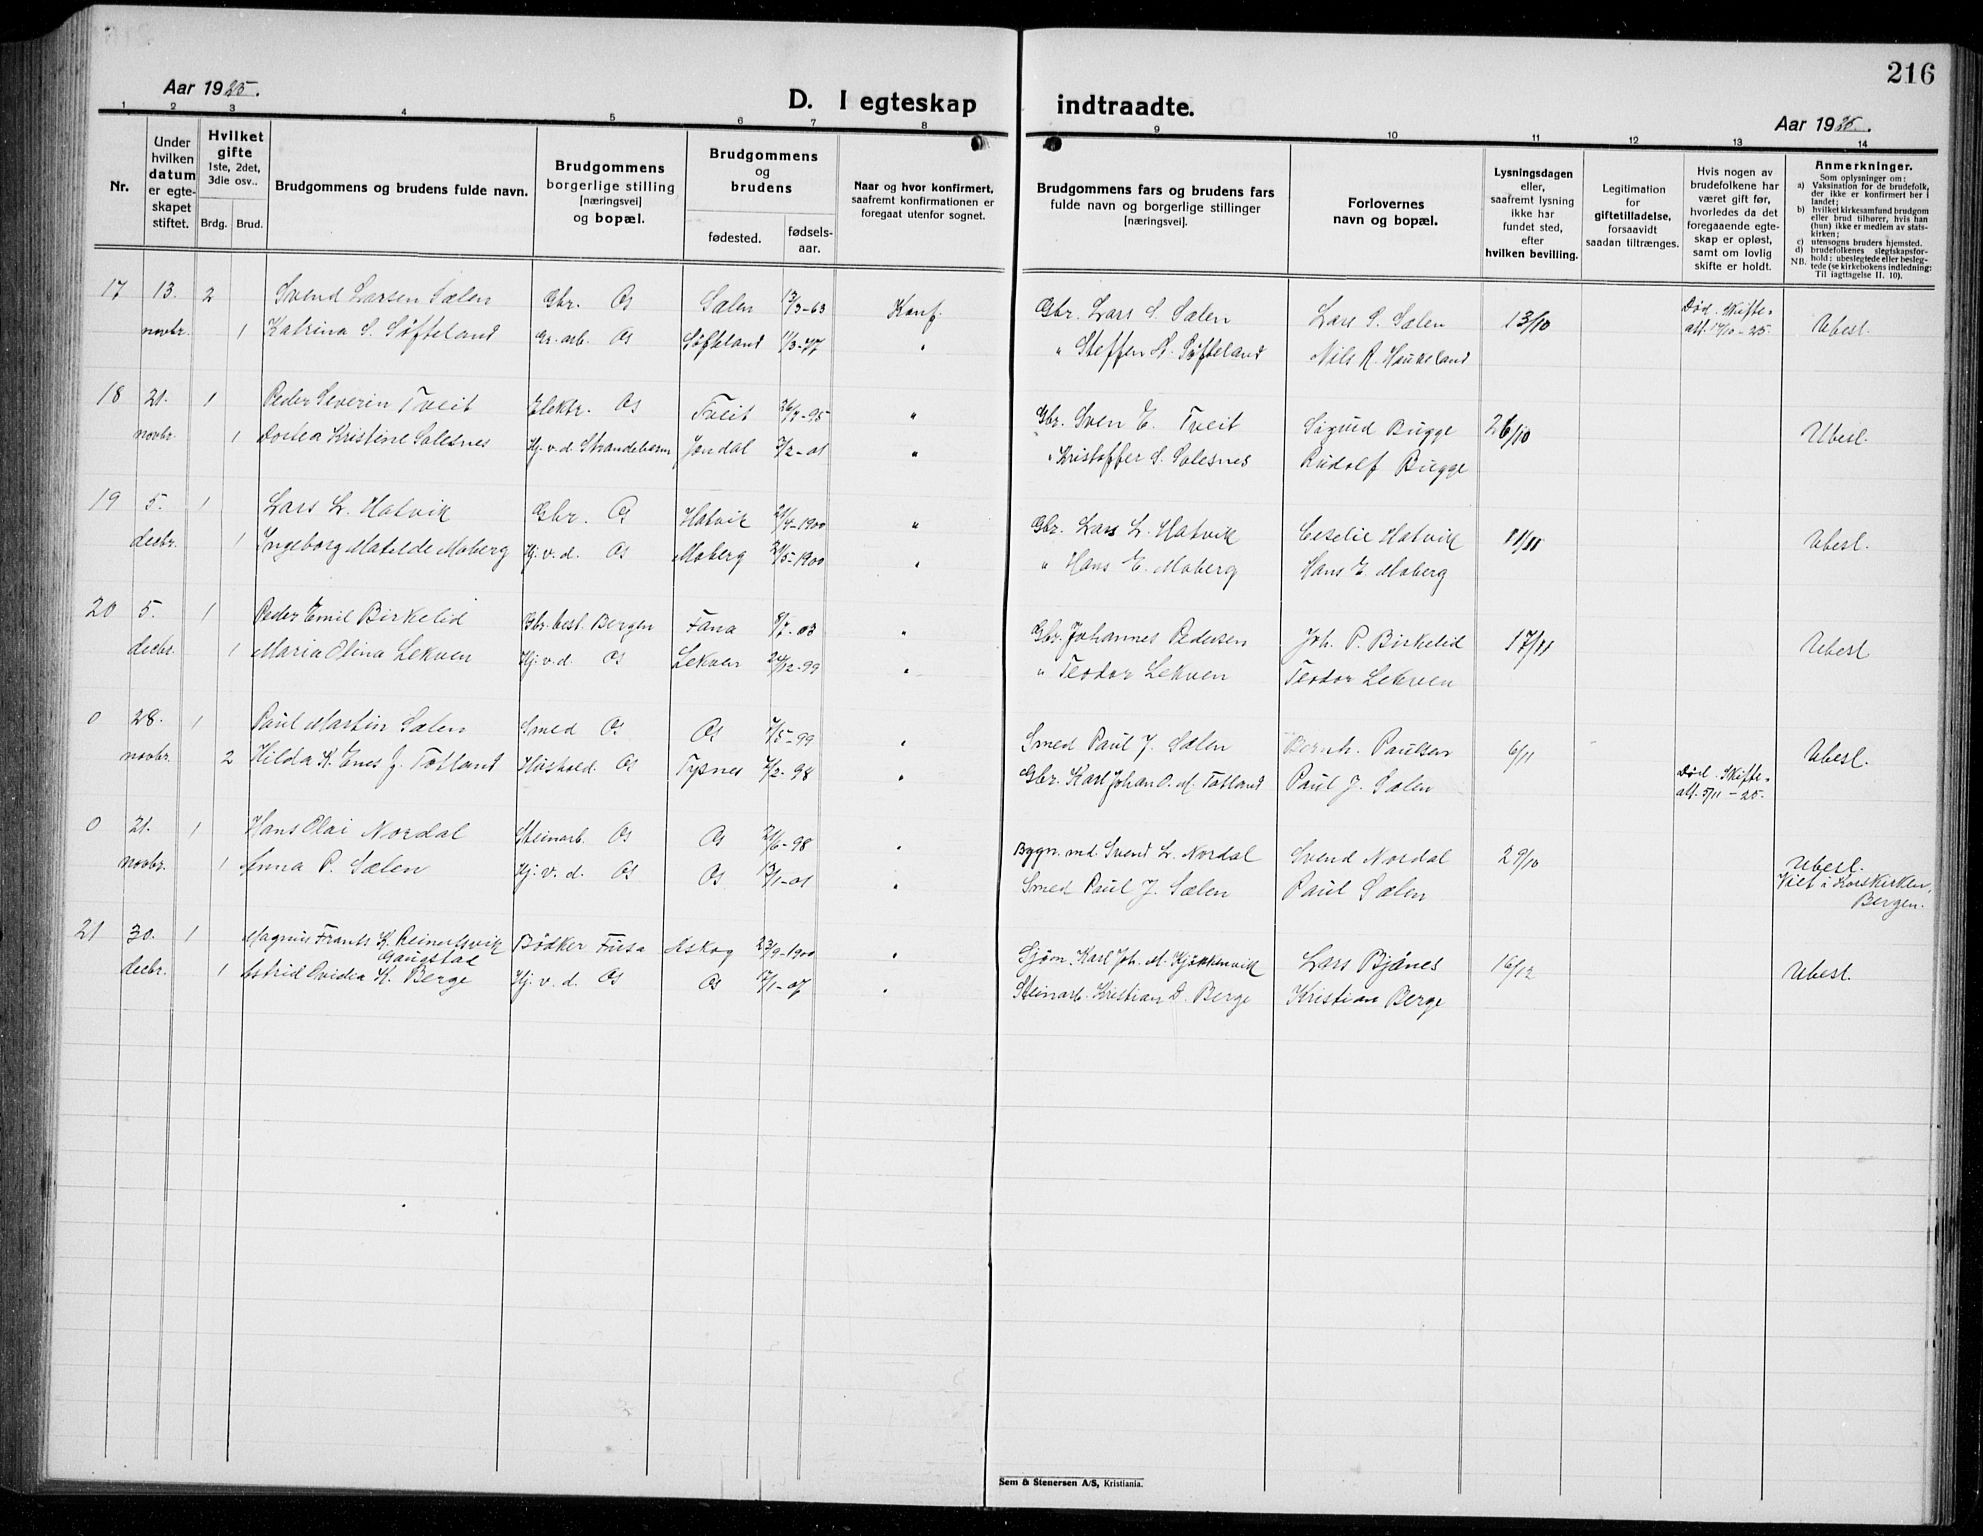 216
Aar 1925.
D. I egteskap indtraadte.
Aar 1925.
1 2 3 4 5 6 7 8 9 10 11 12 13 14
Nr.
Under hvilken datum er egteskapet stiftet.
Hvilket gifte 1ste, 2det, 3die osv..
Brdg. Brud.
Brudgommens og brudens fulde navn.
Brudgommens borgerlige stilling [næringsvei] og bopæl.
Brudgommens og brudens
fødested.
fødselsaar.
Naar og hvor konfirmert, saafremt konfirmationen er foregaat utenfor sognet.
Brudgommens fars og brudens fars fulde navn og borgerlige stillinger [næringsvei].
Forlovernes navn og bopæl.
Lysningsdagen eller, saafremt lysning ikke har fundet sted, efter hvilken bevilling.
Legitimation for giftetilladelse, forsaavidt saadan tiltrænges.
Hvis nogen av brudefolkene har været gift før, hvorledes da det foregaaende egteskap er opløst, samt om lovlig skifte er holdt.
Anmerkninger.
Som oplysninger om:
a) Vaksination for de brudefolk, der ikke er konfirmert her i landet;
b) hvilket kirkesamfund brudgom eller brud tilhører, hvis han (hun) ikke er medlem av statskirken;
c) utensogns bruders hjemsted.
d) brudefolkenes slegtskapsforhold; ubeslegtede eller beslegtede (se kirkebokens indledning: Til iagttagelse II. 10).
NB.
17 13. 2 Svend Larsen Sælen Gbr. Os Sælen 13/3-63 Konf. Gbr. Lars S. Sælen Lars S. Sælen 13/10 Død. Skifte-
novbr. 1 Katrina S. Søfteland Gr. arb. Os Søfteland 1/3-77 " " Steffen H. Søfteland Nils R. Haukeland att. 17/10-25 Ubesl.
18 21. 1 Peder Severin Tveit Elektr. Os Tveit 26/7-95 " Gbr. Sven E. Tveit Sigurd Bugge 26/10 Ubesl.
novbr. 1 Dortea Kristine Solesnes Hj.v.d. Strandebarm Jondal 7/2-01 " " Kristoffer S. Solesnes Rudolf Bugge
19 5. 1 Lars L. Hatvik Gbr. Os Hatvik 21/4-1900 " Gbr. Lars L. Hatvik Ceselie Hatvik 11/11 Ubesl.
decbr. 1 Ingeborg Matilde Moberg Hj.v.d. Os Moberg 21/5-1900 " " Hans E. Moberg Hans E. Moberg
20 5. 1 Peder Emil Birkelid Gbr. best. Bergen Fana 8/7-03 " Gbr. Johannes Pedersen Joh. P. Birkelid 17/11 Ubesl
decbr. 1 Maria Olina Lekven Hj.v.d. Os Lekven 24/12-99 " " Teodor Lekven Teodor Lekven
0 28. 1 Paul Martin Sælen Smed Os Os 7/5-99 " Smed Paul J. Sælen Bernh. Paulsen 6/11 Ubesl.
novbr. 2 Hilda K. Enes f. Totland Hushold. Os Tysnes 7/2-98 " Gbr. Karl Johan O. M. Totland Paul J. Sælen Død. Skifte-
att. 5/11-25.
0 21. 1 Hans Olai Nordal Steinarb. Os Os 21/6-98 " Bygn.md. Svend L. Nordal Svend Nordal 29/10 Ubesl.
novbr. 1 Anna P. Sælen Hj.v.d. Os Os 13/1-01 " Smed Paul J. Sælen Paul Sælen Viet i Korskirken,
Bergen.
21 30. 1 Magnus Frants K. Reinertsvik Bødker Fusa Askog 23/9-1900 " Sjøm. Karl Joh. M. Kjøkkenvik Lars Bjånes 16/12 Ubesl.
Gaugstad
decbr. 1 Astrid Ovidia K. Berge Hj.v.d. Os Os 17/1-07 " Steinarb. Kristian D. Berge Kristian Berge
Sem & Stenersen A/S, Kristiania.